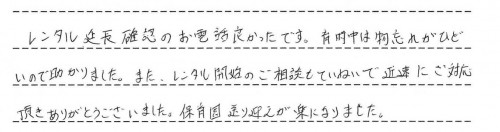 レンタル延長確認のお電話良かったです。育時中は物忘れがひど
いので助かりました。また、レンタル開始のご相談もていねいで迅速にご対応
頂きありがとうございました。保育園送り迎えが楽になりました。